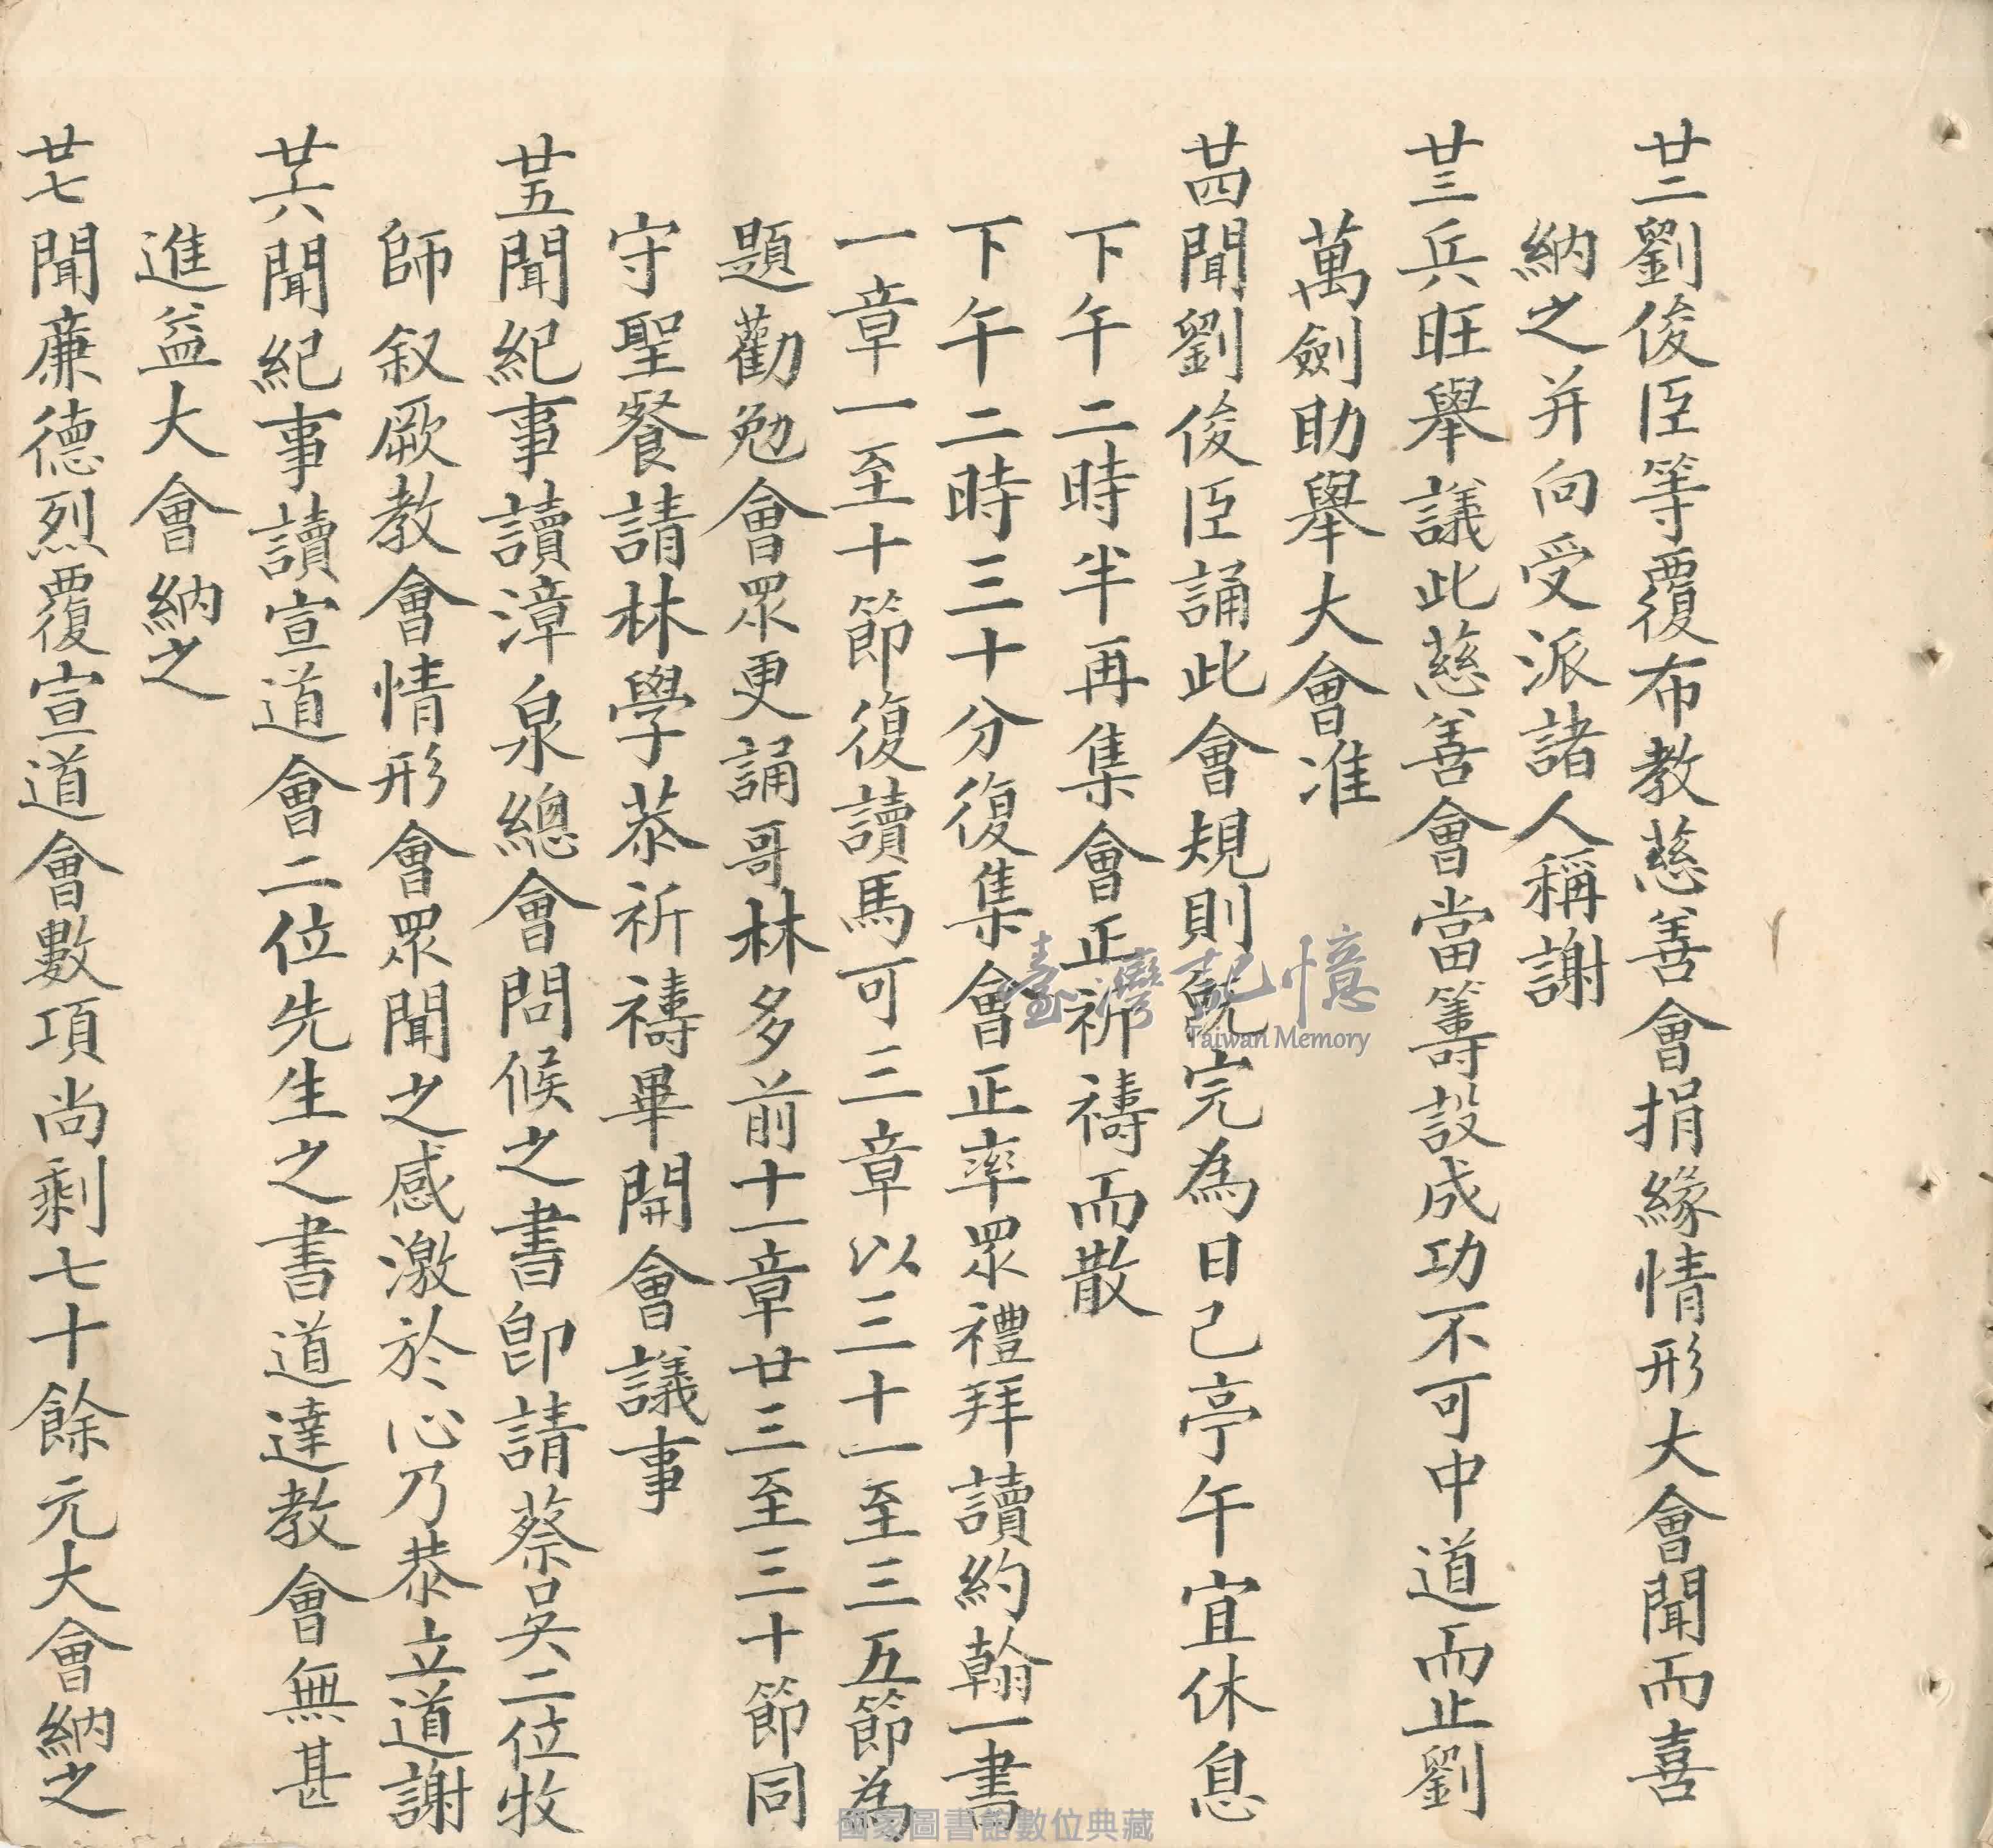 廿二劉俊臣等覆布教慈善會捐緣情形大會聞而喜
納之并向受派諸人稱謝
廿三兵旺舉議此慈善會當籌設成功不可中道而止劉
萬劍助舉大會准
廿四聞劉俊臣誦此會規則既完為日己亭午宜休息
下午二時半再集會正祈禱而散
下午二時三十分復集會正率眾禮拜讀約翰一書
一章一至十節復讀馬可三章以三十一至三五節為
題勸勉會眾更誦哥林多前十一章廿三至三十節同
守聖餐請林學恭祈禱畢開會議事
廿五聞紀事讀漳泉總會問候之書卽請蔡吳二位牧
師叙厥教會情形會眾聞之感激於心乃恭立道謝
廿六聞紀事讀宣道會二位先生之書道達教會無甚
進益大會納之
廿七聞廉德烈覆宣道會數項尚剩七十餘元大會納之
臺灣記憶
Taiwan Memory
國家圖書館數位典藏